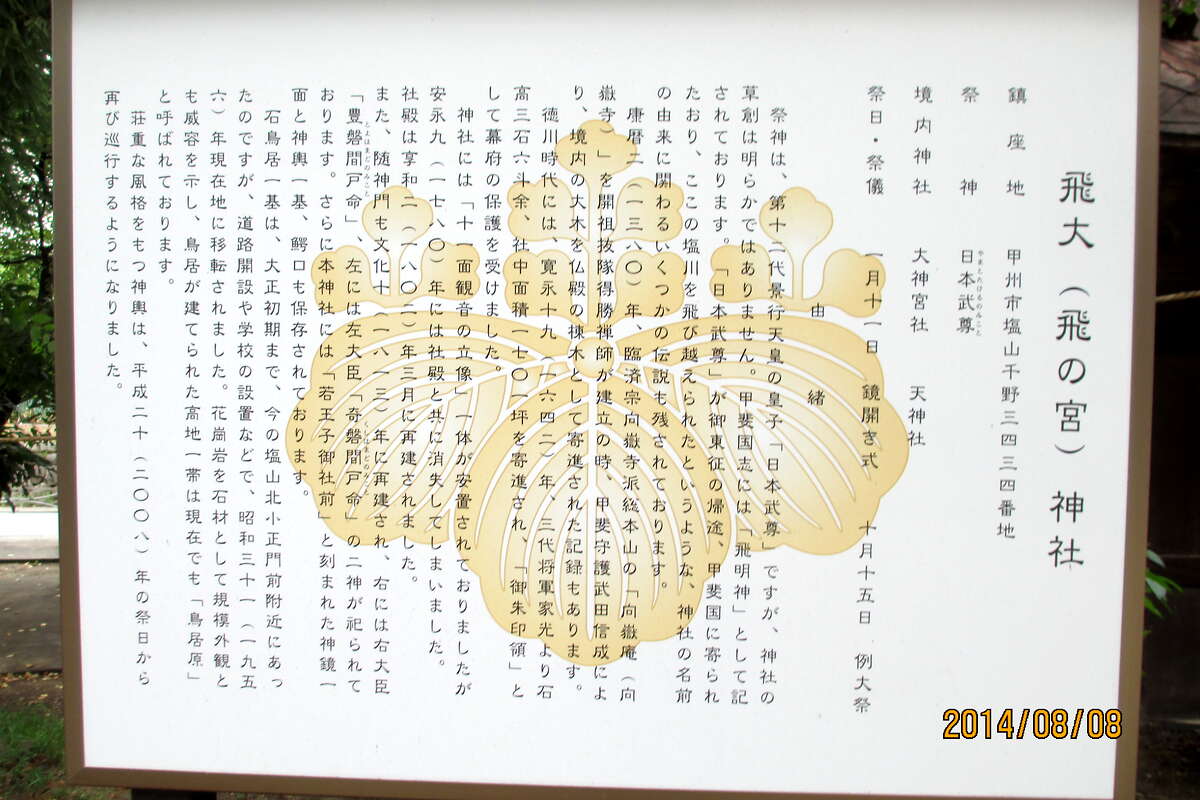 飛大（飛の宮）神社
鎮座地　甲州市塩山千野三四三四番地
祭神　日本武尊
やまとたけるのみこと
境内神社　大神宮社　天神社
祭日・祭儀　一月十一日　鏡開き式　十月十五日　例大祭
由緒
祭神は、第十二代景行天皇の皇子「日本武尊」ですが、神社の
草創は明らかではありません。甲斐国志には「飛明神」として記
されております。「日本武尊」が御東征の帰途、甲斐国に寄られ
たおり、ここの塩川を飛び越えられたというような、神社の名前
の由来に関わるいくつかの伝説も残されております。
康暦二（一三八〇）年、臨済宗向嶽寺派総本山の「向嶽庵（向
嶽寺）」を開祖抜隊得勝禅師が建立の時、甲斐守護武田信成によ
り、境内の大木を仏殿の棟木として寄進された記録もあります。
徳川時代には、寛永十九（一六四二）年、三代将軍家光より石
高三石六斗余、社中面積一七〇一坪を寄進され、「御朱印領」と
して幕府の保護を受けました。
神社には「十一面観音の立像」一体が安置されておりましたが
安永九（一七八〇）年には社殿と共に消失してしまいました。
社殿は享和二（一八〇二）年三月に再建されました。
また、随神門も文化十（一八一三）年に再建され、右には右大臣
「豊磐間戸命」、左には左大臣「奇磐間戸命」の二神が祀られて
とよはまどのみこと
くしはまどのみこと
おります。さらに本神社には「若王子御社前」と刻まれた神鏡一
面と神輿一基、鰐口も保存されております。
石鳥居一基は、大正初期まで、今の塩山北小正門前附近にあっ
たのですが、道路開設や学校の設置などで、昭和三十一（一九五
六）年現在地に移転されました。花崗岩を石材として規模外観と
も威容を示し、鳥居が建てられた高地一帯は現在でも「鳥居原」
と呼ばれております。
荘重な風格をもつ神輿は、平成二十（二〇〇八）年の祭日から
再び巡行するようになりました。
2014/08/08